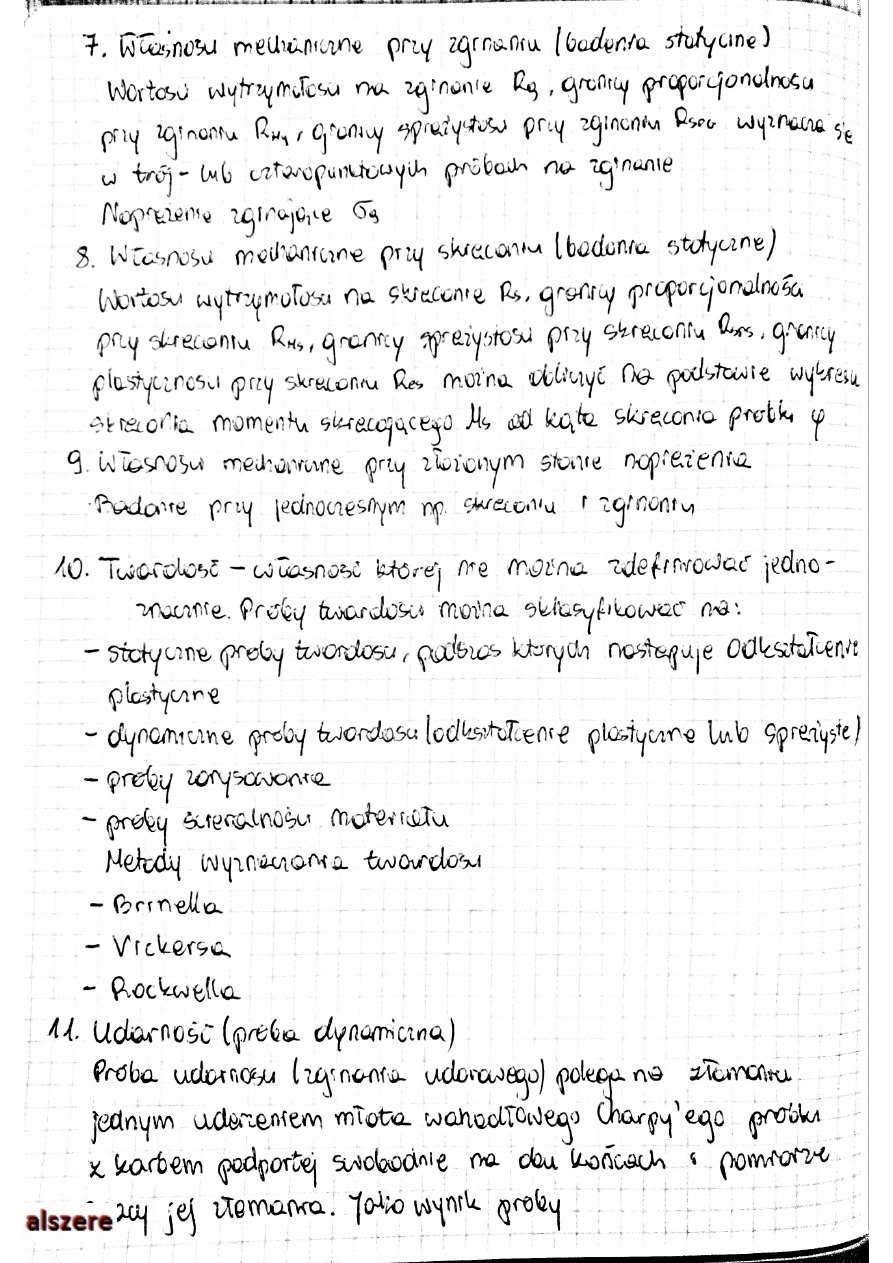 7. Własności mechaniczne przy zginaniu (badania statyczne)
Wartości wytrzymałości na zginanie Rg, granicy proporcjonalności
przy zginaniu RHg, granicy sprężystości przy zginaniu wyznacza się
w trój- lub czteropunktowych próbach na zginanie
Naprężenie zginające σg
8. Własności mechaniczne przy skręcaniu (badania statyczne)
Wartości wytrzymałości na skręcanie Rs, granicy proporcjonalności
przy skręcaniu RHs, granicy sprężystości przy skręcaniu granicy
plastyczności przy skręcaniu Res można obliczyć na podstawie wykresu
skręcania momentu skręcającego Ms od kąta skręcania próbki φ
9. Własności mechaniczne przy złożonym stanie naprężenia
Badanie przy jednoczesnym np. skręcaniu i zginaniu
10. Twardość – własność której nie można zdefiniować jedno-
znacznie. Próby twardości można sklasyfikować na:
- statyczne próby twardości, podczas których następuje odkształcenie
plastyczne
- dynamiczne próby twardości (odkształcenie plastyczne lub sprężyste)
- próby zarysowania
- próby ścieralności materiału
Metody wyznaczania twardości
- Brinella
- Vickersa
- Rockwella
11. Udarność (próba dynamiczna)
Próba udarności (zginania udarowego) polega na złamaniu
jednym uderzeniem młota wahadłowego Charpy'ego próbki
z karbem podpartej swobodnie na obu końcach i pomiarze
jej złamania. Jako wynik próby
alszere